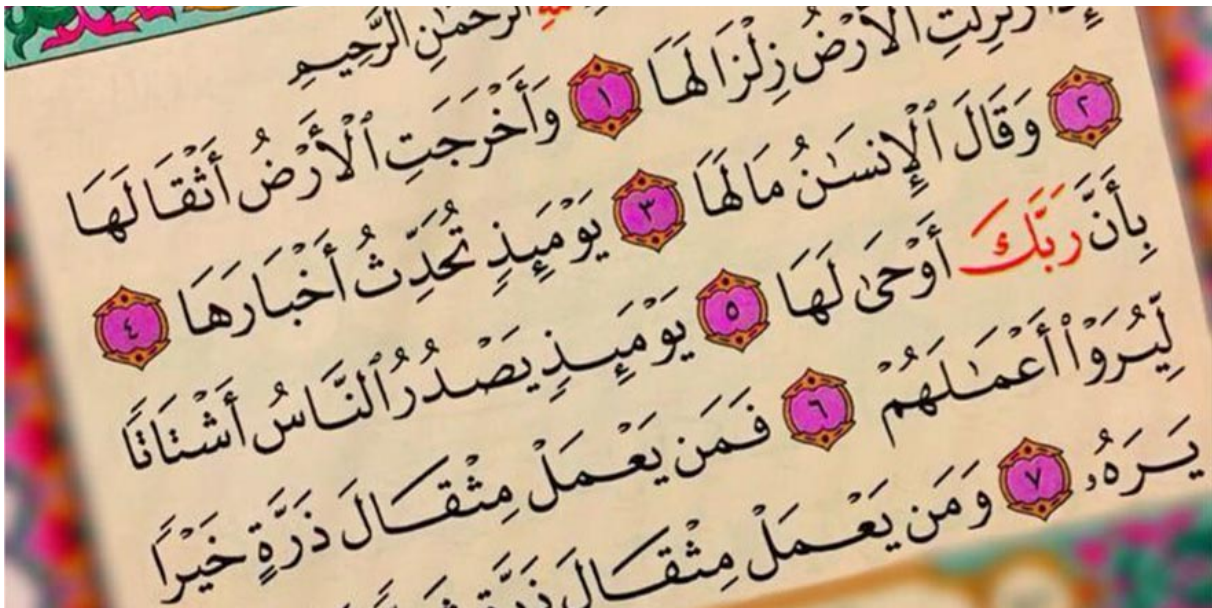 ٱلرَّحْمَٰنِ ٱلرَّحِيمِ
إِذَا زُلْزِلَتِ ٱلْأَرْضُ زِلْزَالَهَا ١ وَأَخْرَجَتِ ٱلْأَرْضُ أَثْقَالَهَا
٢ وَقَالَ ٱلْإِنسَٰنُ مَا لَهَا ٣ يَوْمَئِذٍ تُحَدِّثُ أَخْبَارَهَا ٤
بِأَنَّ رَبَّكَ أَوْحَىٰ لَهَا ٥ يَوْمَئِذٍ يَصْدُرُ ٱلنَّاسُ أَشْتَاتًا
لِّيُرَوْا۟ أَعْمَٰلَهُمْ ٦ فَمَن يَعْمَلْ مِثْقَالَ ذَرَّةٍ خَيْرًا
يَرَهُۥ ٧ وَمَن يَعْمَلْ مِثْقَالَ ذَرَّةٍ